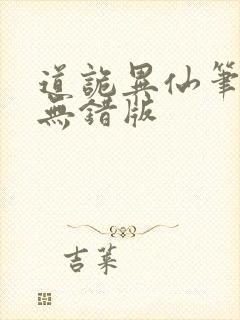 道詭異仙筆
無錯版
吉萊